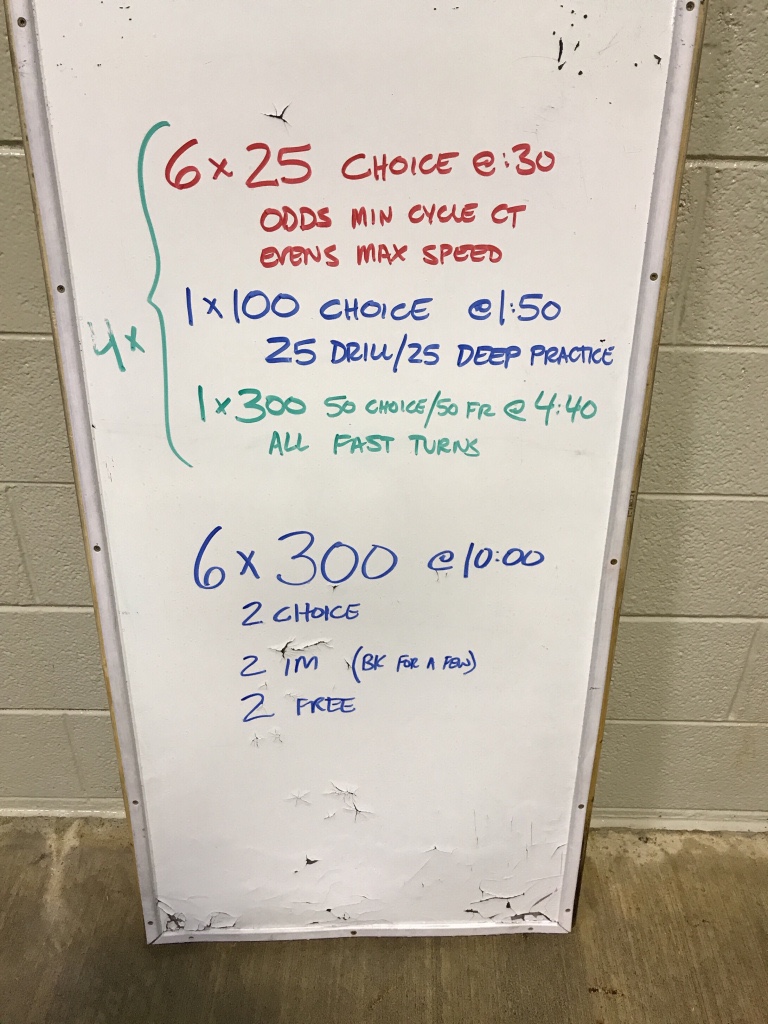 4x
6 x 25 CHOICE @ :30
ODDS MIN CYCLE CT
EVENS MAX SPEED
1 x 100 CHOICE @ 1:50
25 DRILL/25 DEEP PRACTICE
1 x 300 50 CHOICE/50 FR @ 4:40
ALL FAST TURNS
6 x 300 @ 10:00
2 CHOICE
2 IM (BK FOR A FEW)
2 FREE